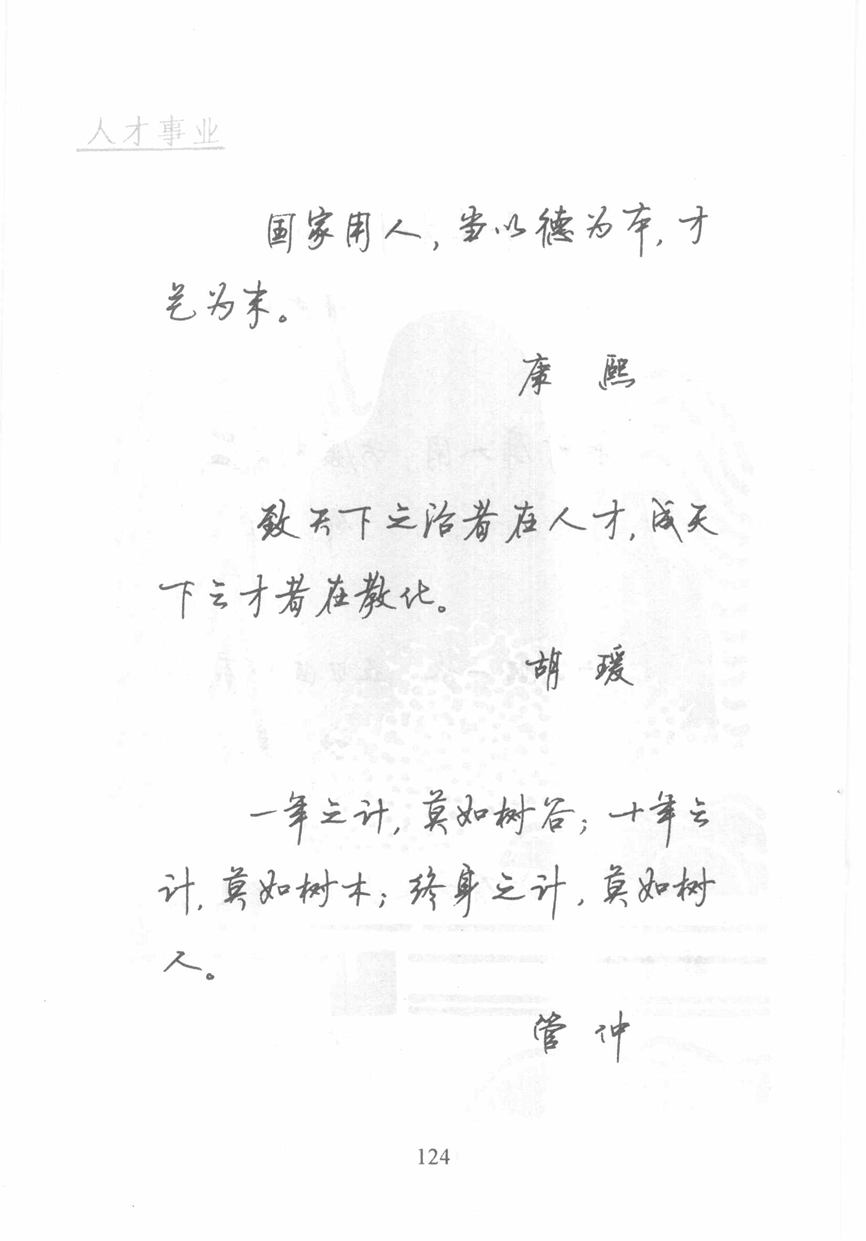 人才事业
国家用人，当以德为本，才
艺为末。
康 熙
致天下之治者在人才，成天
下之才者在教化。
胡 瑗
一年之计，莫如树谷；十年之
计，莫如树木；终身之计，莫如树
人。
管 仲
124